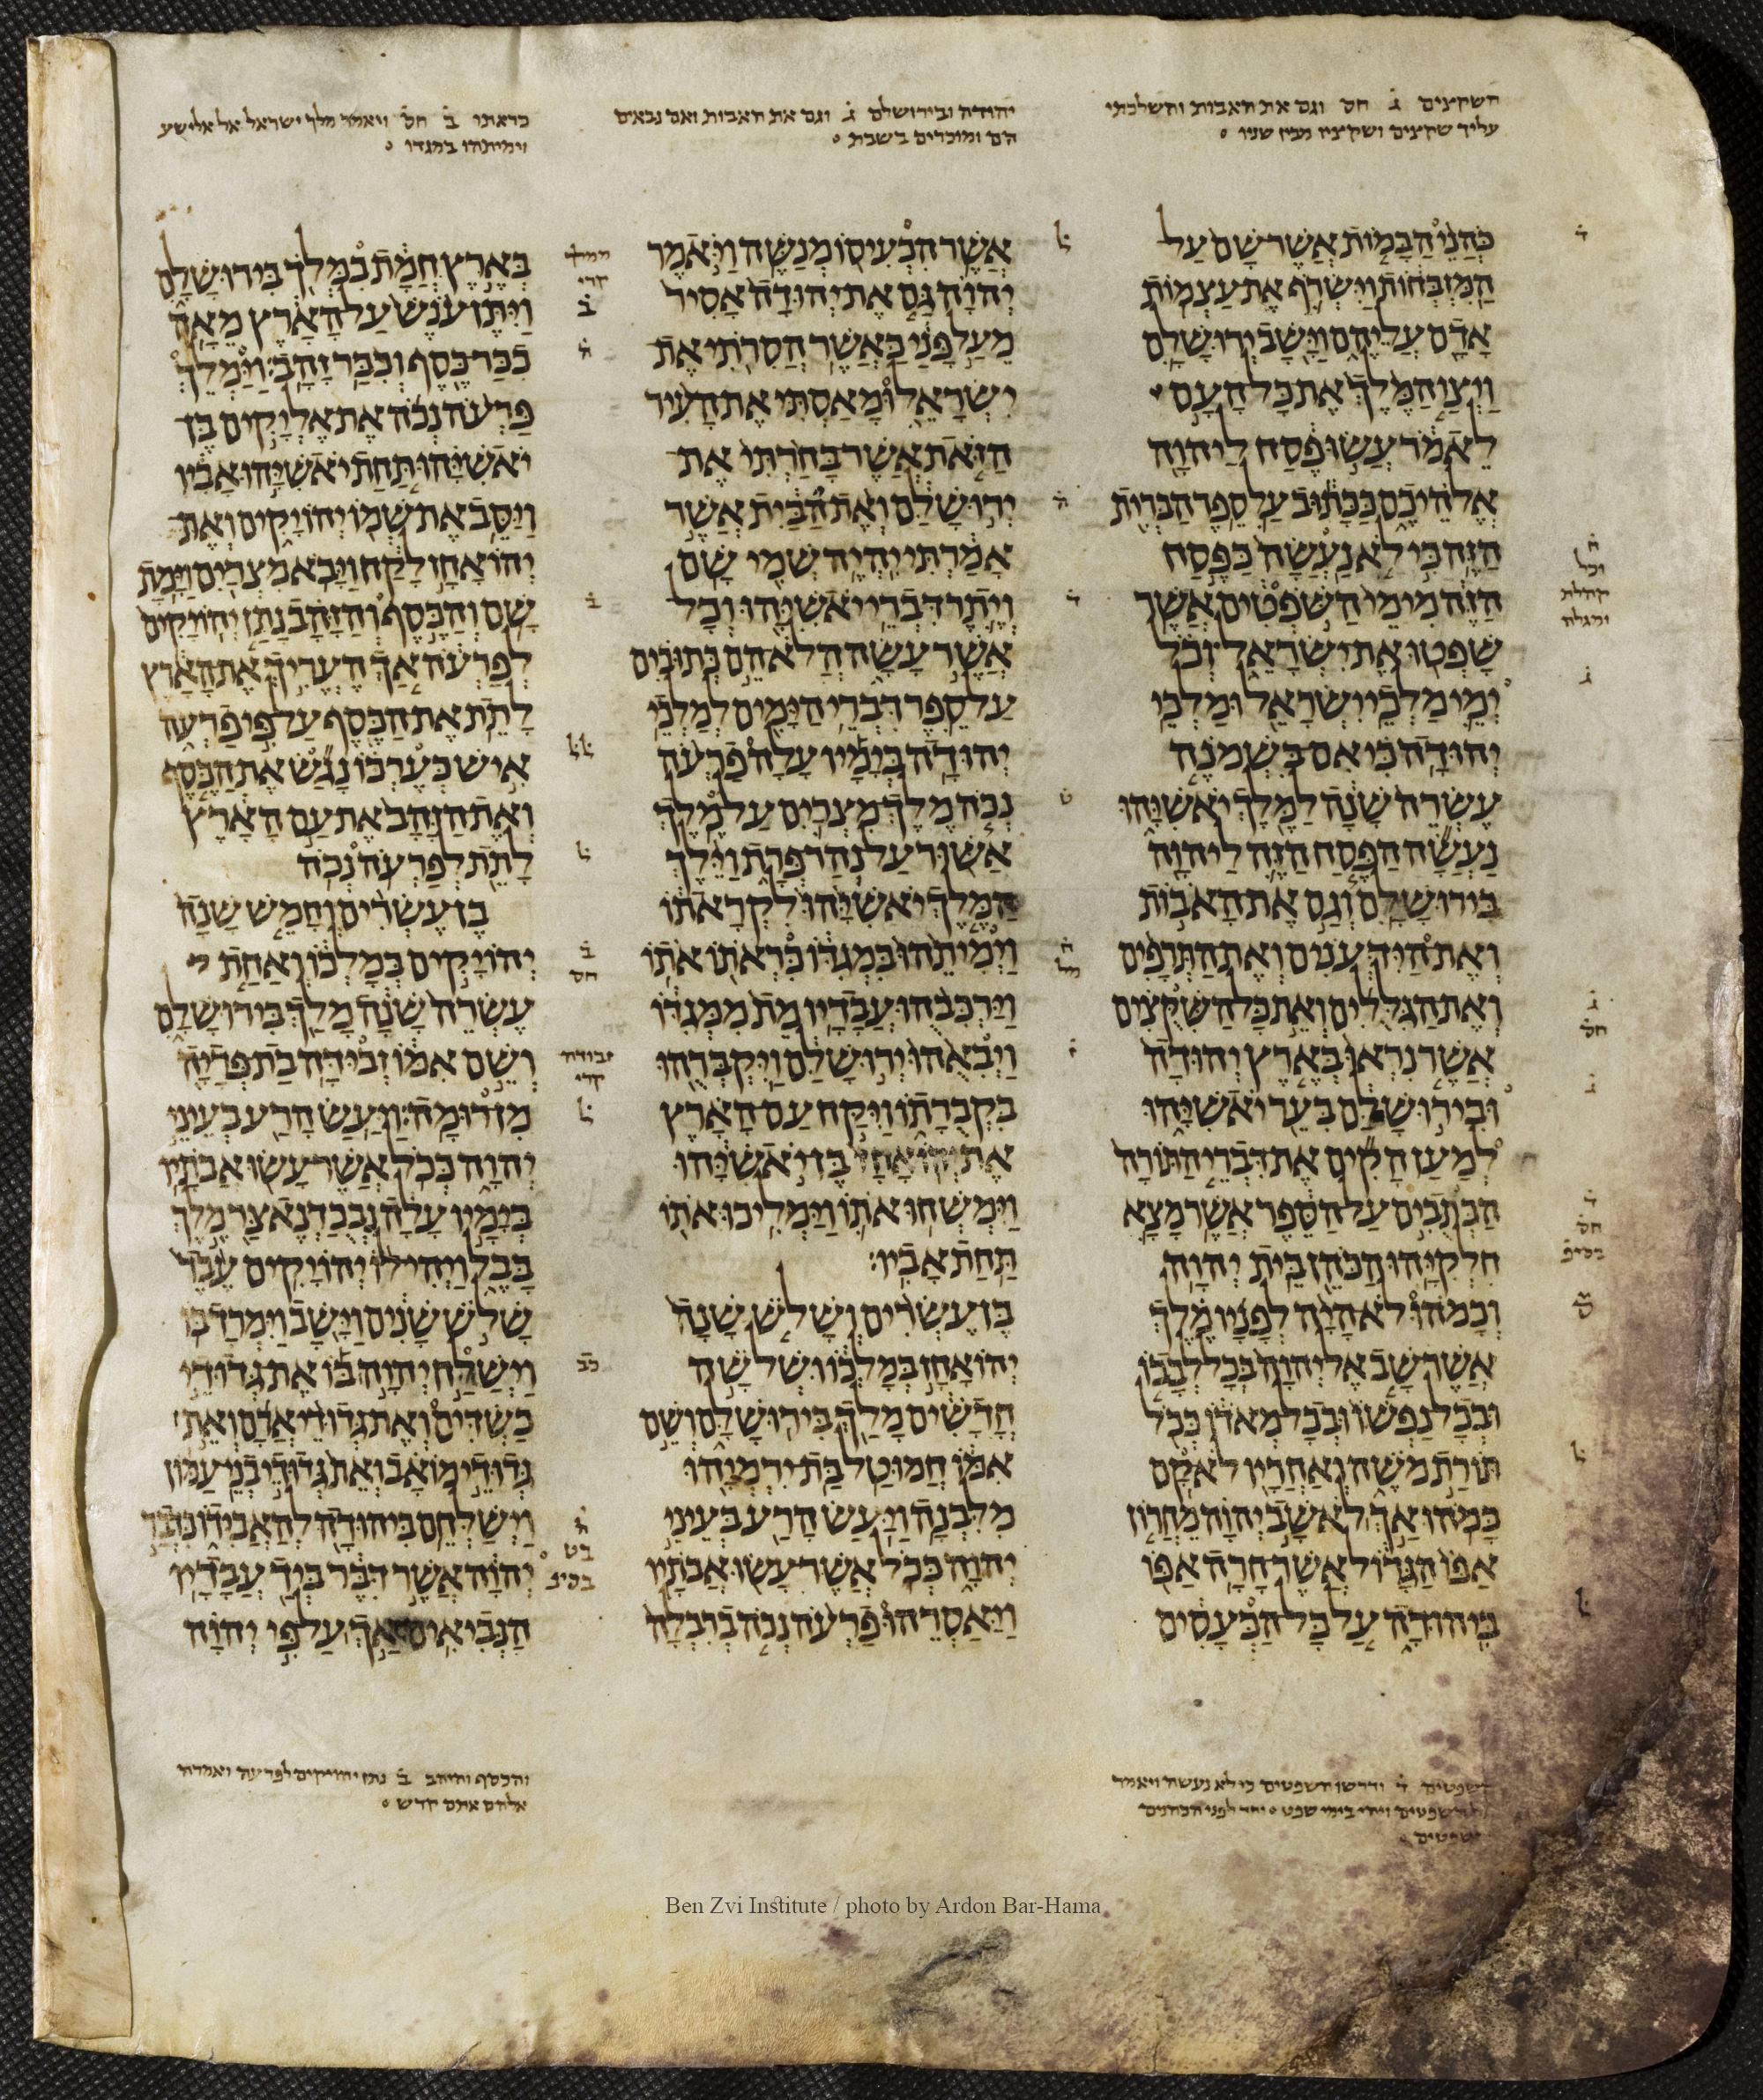 השקצים ג̇ חס וגם את האבות והשלכתי
עליך שקצים ושקוציו מבין שניו
יהודה ובירושלם ג̇ וגם את האבות ואם נבאים
הם ומוכרים בשבת
כראתו ב̇ חס ויאמר מלך ישראל אל אלישע
וימיתהו במגדו
כֹּהֲנֵי הַבָּמוֹת אֲשֶׁר שָׁם עַל
הַמִּזְבְּחוֹת וַיִּשְׂרֹף אֶת עַצְמוֹת
אָדָם עֲלֵיהֶם וַיָּשָׁב יְרוּשָׁלִָם
וַיְצַו הַמֶּלֶךְ אֶת כָּל הָעָם
לֵאמֹר עֲשׂוּ פֶסַח לַיהוָה
אֱלֹהֵיכֶם כַּכָּתוּב עַל סֵפֶר הַבְּרִית
הַזֶּה כִּי לֹא נַעֲשָׂה כַּפֶּסַח
הַזֶּה מִימֵי הַשֹּׁפְטִים אֲשֶׁר
שָׁפְטוּ אֶת יִשְׂרָאֵל וְכֹל
יְמֵי מַלְכֵי יִשְׂרָאֵל וּמַלְכֵי
יְהוּדָה כִּי אִם בִּשְׁמֹנֶה
עֶשְׂרֵה שָׁנָה לַמֶּלֶךְ יֹאשִׁיָּהוּ
נַעֲשָׂה הַפֶּסַח הַזֶּה לַיהוָה
בִּירוּשָׁלִָם וְגַם אֶת הָאֹבוֹת
וְאֶת הַיִּדְּעֹנִים וְאֶת הַתְּרָפִים
וְאֶת הַגִּלֻּלִים וְאֵת כָּל הַשִּׁקֻּצִים
אֲשֶׁר נִרְאוּ בְּאֶרֶץ יְהוּדָה
וּבִירוּשָׁלִַם בִּעֵר יֹאשִׁיָּהוּ
לְמַעַן הָקִים אֶת דִּבְרֵי הַתּוֹרָה
הַכְּתֻבִים עַל הַסֵּפֶר אֲשֶׁר מָצָא
חִלְקִיָּהוּ הַכֹּהֵן בֵּית יְהוָה
וְכָמֹהוּ לֹא הָיָה לְפָנָיו מֶלֶךְ
אֲשֶׁר שָׁב אֶל יְהוָה בְּכָל לְבָבוֹ
וּבְכָל נַפְשׁוֹ וּבְכָל מְאֹדוֹ כְּכֹל
תּוֹרַת מֹשֶׁה וְאַחֲרָיו לֹא קָם
כָּמֹהוּ אַךְ לֹא שָׁב יְהוָה מֵחֲרוֹן
אַפּוֹ הַגָּדוֹל אֲשֶׁר חָרָה אַפּוֹ
בִּיהוּדָה עַל כָּל הַכְּעָסִים
אֲשֶׁר הִכְעִיסוֹ מְנַשֶּׁה וַיֹּאמֶר
יְהוָה גַּם אֶת יְהוּדָה אָסִיר
מֵעַל פָּנַי כַּאֲשֶׁר הֲסִרֹתִי אֶת
יִשְׂרָאֵל וּמָאַסְתִּי אֶת הָעִיר
הַזֹּאת אֲשֶׁר בָּחַרְתִּי אֶת
יְרוּשָׁלִַם וְאֶת הַבַּיִת אֲשֶׁר
אָמַרְתִּי יִהְיֶה שְׁמִי שָׁם
וְיֶתֶר דִּבְרֵי יֹאשִׁיָּהוּ וְכָל
אֲשֶׁר עָשָׂה הֲלֹא הֵם כְּתוּבִים
עַל סֵפֶר דִּבְרֵי הַיָּמִים לְמַלְכֵי
יְהוּדָה בְּיָמָיו עָלָה פַרְעֹה
נְכֹה מֶלֶךְ מִצְרַיִם עַל מֶלֶךְ
אַשּׁוּר עַל נְהַר פְּרָת וַיֵּלֶךְ
הַמֶּלֶךְ יֹאשִׁיָּהוּ לִקְרָאתוֹ
וַיְמִיתֵהוּ בִּמְגִדּוֹ כִּרְאֹתוֹ אֹתוֹ
וַיַּרְכִּבֻהוּ עֲבָדָיו מֵת מִמְּגִדּוֹ
וַיְבִאֻהוּ יְרוּשָׁלִַם וַיִּקְבְּרֻהוּ
בִּקְבֻרָתוֹ וַיִּקַּח עַם הָאָרֶץ
אֶת יְהוֹאָחָז בֶּן יֹאשִׁיָּהוּ
וַיִּמְשְׁחוּ אֹתוֹ וַיַּמְלִיכוּ אֹתוֹ
תַּחַת אָבִיו׃
בֶּן עֶשְׂרִים וְשָׁלֹשׁ שָׁנָה
יְהוֹאָחָז בְּמָלְכוֹ וּשְׁלֹשָׁה
חֳדָשִׁים מָלַךְ בִּירוּשָׁלִָם וְשֵׁם
אִמּוֹ חֲמוּטַל בַּת יִרְמְיָהוּ
מִלִּבְנָה וַיַּעַשׂ הָרַע בְּעֵינֵי
יְהוָה כְּכֹל אֲשֶׁר עָשׂוּ אֲבֹתָיו
וַיַּאַסְרֵהוּ פַרְעֹה נְכֹה בְרִבְלָה
בְּאֶרֶץ חֲמָת בִּמְלֹךְ בִּירוּשָׁלִָם
וַיִּתֶּן עֹנֶשׁ עַל הָאָרֶץ מֵאָה
כִכַּר כֶּסֶף וְכִכַּר זָהָב׃ וַיַּמְלֵךְ
פַּרְעֹה נְכֹה אֶת אֶלְיָקִים בֶּן
יֹאשִׁיָּהוּ תַּחַת יֹאשִׁיָּהוּ אָבִיו
וַיַּסֵּב אֶת שְׁמוֹ יְהוֹיָקִים וְאֶת
יְהוֹאָחָז לָקַח וַיָּבֹא מִצְרַיִם וַיָּמָת
שָׁם וְהַכֶּסֶף וְהַזָּהָב נָתַן יְהוֹיָקִים
לְפַרְעֹה אַךְ הֶעֱרִיךְ אֶת הָאָרֶץ
לָתֵת אֶת הַכֶּסֶף עַל פִּי פַרְעֹה
אִישׁ כְּעֶרְכּוֹ נָגַשׂ אֶת הַכֶּסֶף
וְאֶת הַזָּהָב אֶת עַם הָאָרֶץ
לָתֵת לְפַרְעֹה נְכֹה
בֶּן עֶשְׂרִים וְחָמֵשׁ שָׁנָה
יְהוֹיָקִים בְּמָלְכוֹ וְאַחַת
עֶשְׂרֵה שָׁנָה מָלַךְ בִּירוּשָׁלִָם
וְשֵׁם אִמּוֹ זְבוּדָּה בַת פְּדָיָה
מִן רוּמָה׃ וַיַּעַשׂ הָרַע בְּעֵינֵי
יְהוָה כְּכֹל אֲשֶׁר עָשׂוּ אֲבֹתָיו
בְּיָמָיו עָלָה נְבֻכַדְנֶאצַּר מֶלֶךְ
בָּבֶל וַיְהִי לוֹ יְהוֹיָקִים עֶבֶד
שָׁלֹשׁ שָׁנִים וַיָּשָׁב וַיִּמְרָד בּוֹ
וַיְשַׁלַּח יְהוָה בּוֹ אֶת גְּדוּדֵי
כַשְׂדִּים וְאֶת גְּדוּדֵי אֲרָם וְאֵת
גְּדוּדֵי מוֹאָב וְאֵת גְּדוּדֵי בְנֵי עַמּוֹן
וַיְשַׁלְּחֵם בִּיהוּדָה לְהַאֲבִידוֹ כִּדְבַר
יְהוָה אֲשֶׁר דִּבֶּר בְּיַד עֲבָדָיו
הַנְּבִיאִים אַךְ עַל פִּי יְהוָה
השפטים ד̇ ודרשו השפטים כי לא נעשה ויאמר
השפטים ויהי בימי שפט
והכסף והזהב ב̇ נתן יהויקים לפרעה ואמרה
אלהם אתם קדש
Ben Zvi Institute / photo by Ardon Bar-Hama